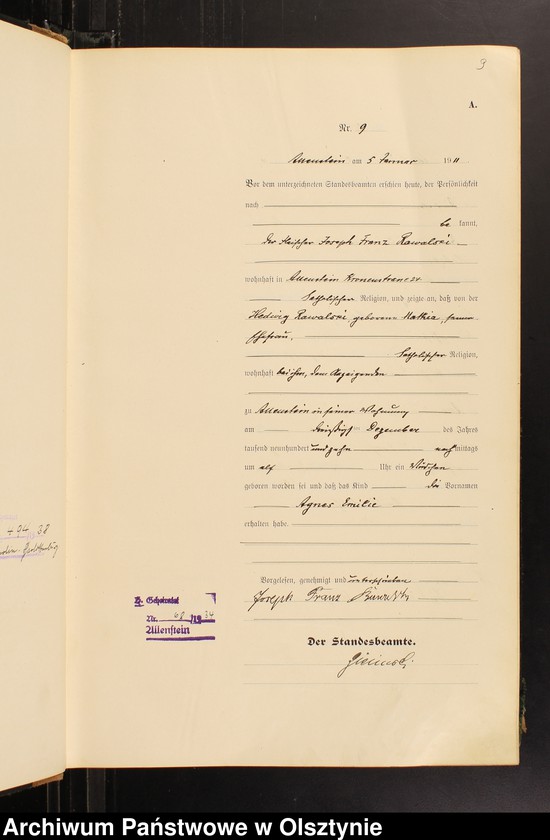 3
A.
Nr. 9
Allenstein am 5 Januar 1911
Vor dem unterzeichneten Standesbeamten erschien heute, der Persönlichkeit
nach
be kannt,
der Fleischer Joseph Franz Kawalski
wohnhaft in Allenstein Kronenstrasse 34
katholischer Religion, und zeigte an, daß von der
Hedwig Kawalski geborene Mathia, seiner
Ehefrau,
katholischer Religion,
wohnhaft bei ihm, dem Anzeigenden
zu Allenstein in seiner Wohnung
am dreißigsten Dezember des Jahres
tausend neunhundert und zehn nachmittags
um elf Uhr ein Mädchen
geboren worden sei und daß das Kind die Vornamen
Agnes Emilie
erhalten habe.
Vorgelesen, genehmigt und unterschrieben
Joseph Franz
Der Standesbeamte.
+ 94 38
Nr. 68/1934
Allenstein
Archiwum Państwowe w Olsztynie